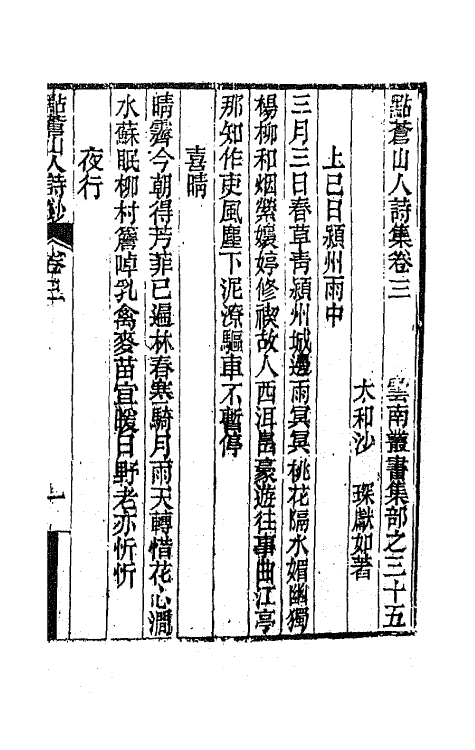 點蒼山人詩集卷三　雲南叢書集部之三十五
太和沙　琛獻如著
上巳日潁州雨中
三月三日春草青潁州城邊雨冥冥桃花隔水媚幽獨
楊柳和烟縈嬝婷修禊故人西洱畠豪遊往事曲江亭
那知作吏風塵下泥潦驅車不暫停
喜晴
晴霽今朝得芳菲已遍林春寒一騎月雨天轉惜花心澗
水蘇眠柳村簷啅乳禽麥苗宜暖日野老亦忻忻
夜行
點蒼山人詩鈔　卷三　一